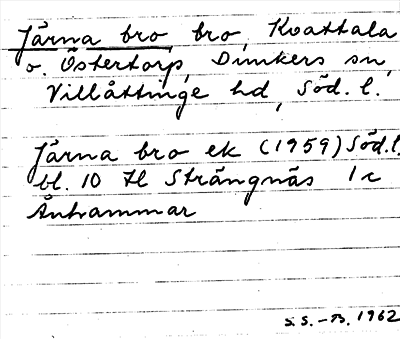 Järna bro, bro, Kvattala
o. Östertorp, Dunkers sn,
Villåttinge hd, Söd. l.
Järna bro ek (1959) Söd. l.
bl. 10 Strängnäs 1 c
Ånhammar
S.S.-B. 1962